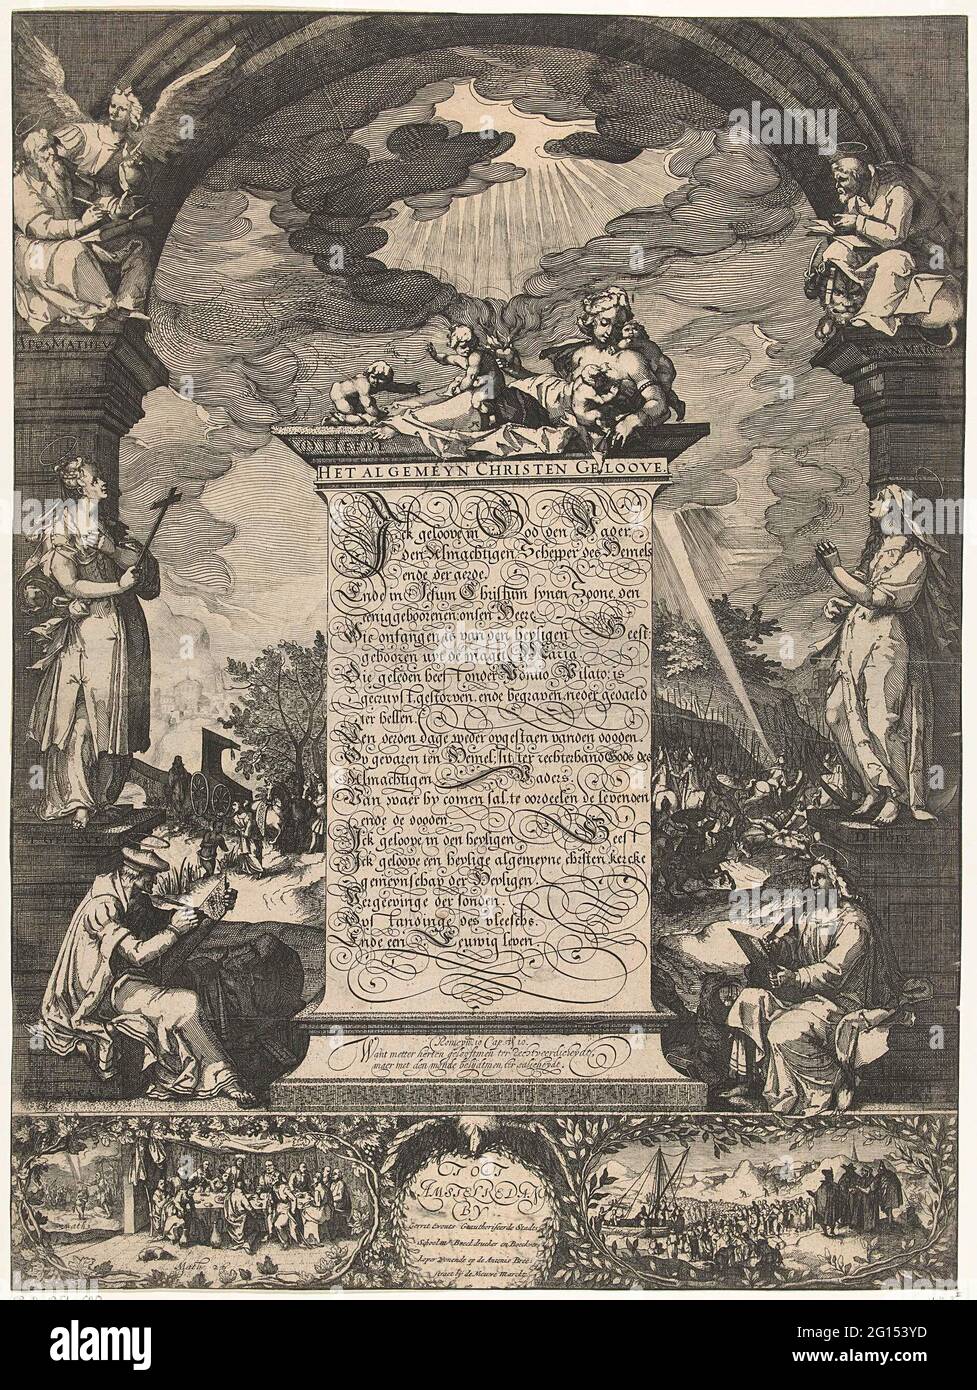 APOS. MATHEVS
D. LIEFDE
HET ALGEMEYN CHRISTEN GELOOVE.
Ick geloove in God den Vader
der Almachtigen Schepper des Hemels
ende der aerde.
Ende in Jesum Christum synen Zoone, den
eeniggeboorenen onsen Heere
Die ontfangen is van den heyligen Geest:
gebooren uyt de maget Maria
Die geleden heeft onder Pontio Pilato: is
gecruyst, gestorven, ende begraven, neder gedaeld
ter hellen.
Ten derden dage weder opgestaen vanden dooden.
Opgevaren ten Hemel, sit ter rechterhand Gods des
Almachtigen Vaders
Van waer hy comen sal, te oordeelen de levenden
ende de dooden.
Ick geloove in den heyligen Geest
Ick geloove een heylige algemeyne christen kercke
gemeynschap der Heyligen
Vergeevinge der sonden
Opstandinge des vleeschs.
Ende een Eeuwig leven.
Romeyn: 10 Cap. vs 10.
Want metter herten gelooftmen ter rechtveerdicheyde,
maer met den monde belydtmen ter salicheydt.
TOT
AMSTERDAM
BY
Gerret Evouts Geauthoriseerde Stadts
Schoolmr. Boeckdrucker en Boeckver
koper wonende op de Antonis Bree
straet by de Nieuwe Marckt
Math. 22
alamy
Image ID: 2G153YD
www.alamy.com